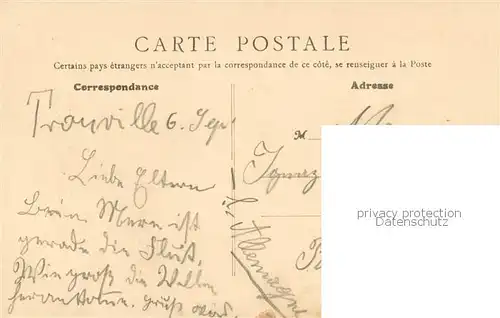 CARTE POSTALE
Certains pays étrangers n'acceptant par la correspondance de ce côté, se renseigner à la Poste
Correspondance
Adresse
Trouville 6. Sep.
M
Liebe Eltern
Ignaz
Beim Meere ist
gerade die Flut.
Wie groß die Wellen
herankommen. Gruß
Allemagne
privacy protection
Datenschutz